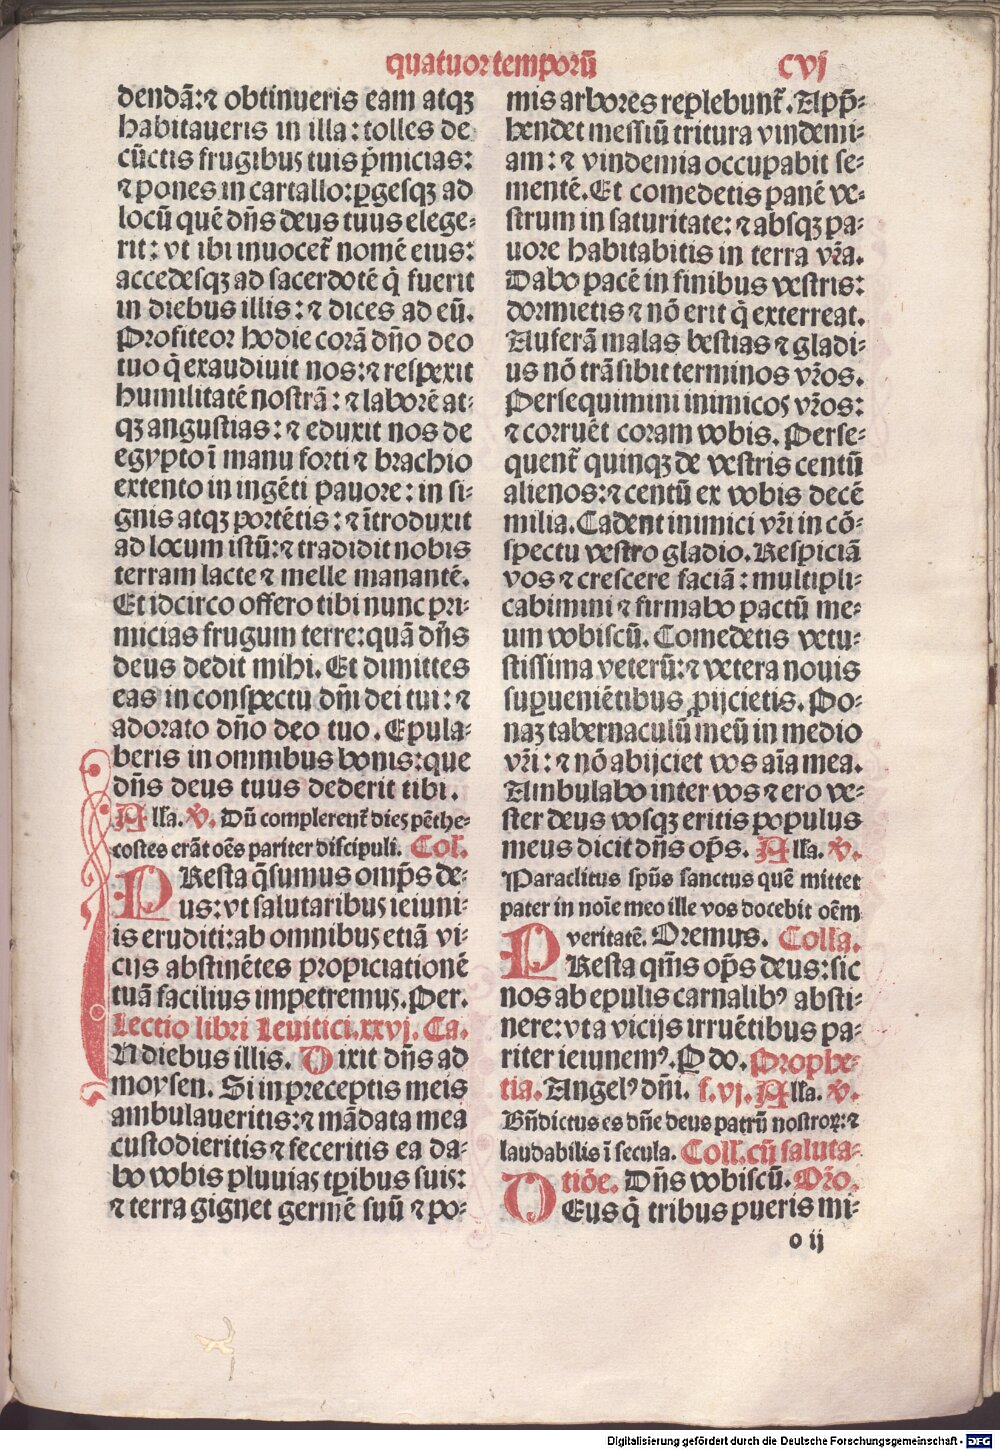 quatuor temporū
cvj
dendā:⁊ obtinueris eam atqꝫ
habitaueris in illa: tolles de
cūctis frugibus tuis p̄micias:
⁊ pones in cartallo: ꝑgesqꝫ ad
locū quē dn̄s deus tuus elege-
rit: vt ibi inuocet᷑ nomē eius:
accedesqꝫ ad sacerdotē q̄ fuerit
in diebus illis: ⁊ dices ad eū.
Profiteor hodie corā dn̄o deo
tuo q̄ exaudiuit nos:⁊ respexit
humilitatē nostrā: ⁊ laborē at-
qꝫ angustias: ⁊ eduxit nos de
egypto ī manu forti ⁊ brachio
extento in ingēti pauore: in si-
gnis atqꝫ portētis: ⁊ ītroduxit
ad locum istū:⁊ tradidit nobis
terram lacte ⁊ melle manantē.
Et idcirco offero tibi nunc pri-
micias frugum terre: quā dn̄s
deus dedit mihi. Et dimittes
eas in conspectu dn̄i dei tui: ⁊
adorato dn̄o deo tuo. Epula-
beris in omnibus bonis: que
dn̄s deus tuus dederit tibi.
Alla. ℣. Dū complerent᷑ dies pēthe-
costes erāt oēs pariter discipuli. Col̄.
PResta q̄sumus omp̄s de-
us: vt salutaribus ieiuni-
is eruditi: ab omnibus etiā vi-
cijs abstinētes propiciationē
tuā facilius impetremus. Per.
Lectio libri Leuitici. xxvj. Ca.
IN diebus illis. Dixit dn̄s ad
moysen. Si in preceptis meis
ambulaueritis: ⁊ mādata mea
custodieritis ⁊ feceritis ea da-
bo vobis pluuias tp̄ibus suis:
⁊ terra gignet germē suū ⁊ po-
mis arbores replebunt᷑. App̄-
hendet messiū tritura vindemi-
am: ⁊ vindemia occupabit se-
mentē. Et comedetis panē ve-
strum in saturitate: ⁊ absqꝫ pa-
uore habitabitis in terra vr̄a.
Dabo pacē in finibus vestris:
dormietis ⁊ nō erit q̄ exterreat.
Auferā malas bestias ⁊ gladi-
us nō trāsibit terminos vr̄os.
Persequimini inimicos vr̄os:
⁊ corruēt coram vobis. Perse-
quent᷑ quinqꝫ de vestris centū
alienos: ⁊ centū ex vobis decē
milia. Cadent inimici vr̄i in cō-
spectu vestro gladio. Respiciā
vos ⁊ crescere faciā: multipli-
cabimini ⁊ firmabo pactū me-
um vobiscū. Comedetis vetu-
stissima veterū: ⁊ vetera nouis
suꝑueniētibus ꝓijcietis. Po-
naꝫ tabernaculū meū in medio
vr̄i: ⁊ nō abijciet vos aīa mea.
Ambulabo inter vos ⁊ ero ve-
ster deus vosqꝫ eritis populus
meus dicit dn̄s op̄s. Alla. ℣.
Paraclitus sp̄us sanctus quē mittet
pater in noīe meo ille vos docebit oēm
veritatē. Oremus. Colla.
PResta qm̄s op̄s deus: sic
nos ab epulis carnalibꝰ absti-
nere: vt a vicijs irruētibus pa-
riter ieiunemꝰ. P do. Prophe-
tia. Angelꝰ dn̄i. f. vj. Alla. ℣.
Bn̄dictus es dn̄e deus patrū nostroꝝ: ⁊
laudabilis ī secula. Coll̄. cū saluta-
tiōe. Dn̄s vobiscū. Or̄o.
DEus q̄ tribus pueris mi-
o ij
Digitalisierung gefördert durch die Deutsche Forschungsgemeinschaft - DFG